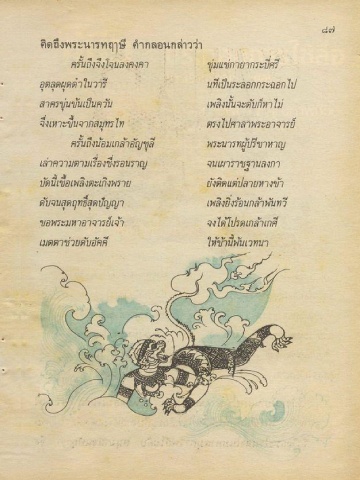 ๘๗
คิดถึงพระนารทฤๅษี คำกลอนกล่าวว่า
ครั้นถึงจึงโจนลงคงคา ชุ่มแช่กายากระบี่ศรี
อุตลุดผุดดำในวารี นทีเป็นระลอกกระฉอกไป
สาครขุ่นข้นเป็นควัน เพลิงนั้นจะดับก็หาไม่
จึ่งเหาะขึ้นจากสมุทรไท ตรงไปศาลาพระอาจารย์
ครั้นถึงน้อมเกล้าอัญชุลี พระนารทผู้ปรีชาหาญ
เล่าความตามเรื่องซึ่งรอนราญ จนเผาราชฐานลงกา
บัดนี้เชื้อเพลิงตะเกิงพราย ยังติดแต่ปลายหางข้า
ดับจนสุดฤทธิ์สุดปัญญา เพลิงยิ่งร้อนกล้าพันทวี
ขอพระมหาอาจารย์เจ้า จงได้โปรดเกล้าเกศี
เมตตาช่วยดับอัคคี ให้ข้านี้พ้นเวทนา